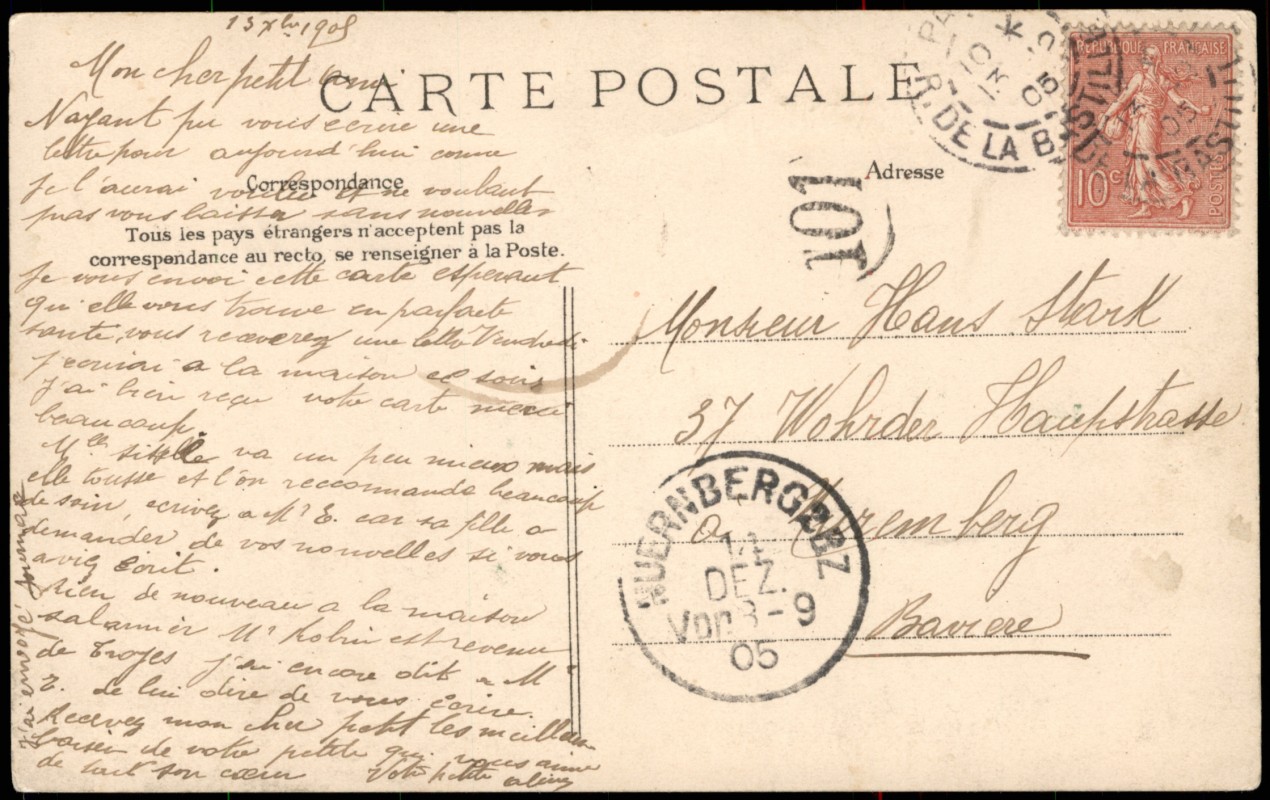 13 Xbre 1905
Mon cher petit ami
CARTE POSTALE
N'ayant pu vous ecrire une
lettre pour aujourd'hui comme
Je l'aurai voulu et ne voulant
pas vous laisser sans nouvelles
Correspondance
Tous les pays étrangers n'acceptent pas la
correspondance au recto, se renseigner à la Poste.
Je vous envoi cette carte esperant
qu'elle vous trouve en parfaite
sante, vous recevrez une lettre Vendredi
J'ecrirai a la maison ce soir
J'ai bien reçu votre carte merci
beaucoup.
Mlle va un peu mieux mais
elle tousse et l'on reccommande beaucoup
de soin, ecrivez a Mr E. car sa fille a
demander de vos nouvelles si vous
aviez écrit.
Rien de nouveau a la maison
Mr Robin est revenu
de Troyes j'ai encore dit a Mr
E. de lui dire de vous écrire.
Recevez mon cher petit les meilleurs
baisers de votre petite qui vous aime
de tout son cœur Votre petite
J'ai envoyé
Adresse
Monsieur Hans Stark
37 Wohrder Haupstrasse
a Nuremberg
Baviere
101
REPUBLIQUE FRANÇAISE
10 c
POSTES
PA
R. DE LA BASTILLE
10
13
05
NUERNBERG 2 BZ
14
DEZ.
Vor. 8-9
05